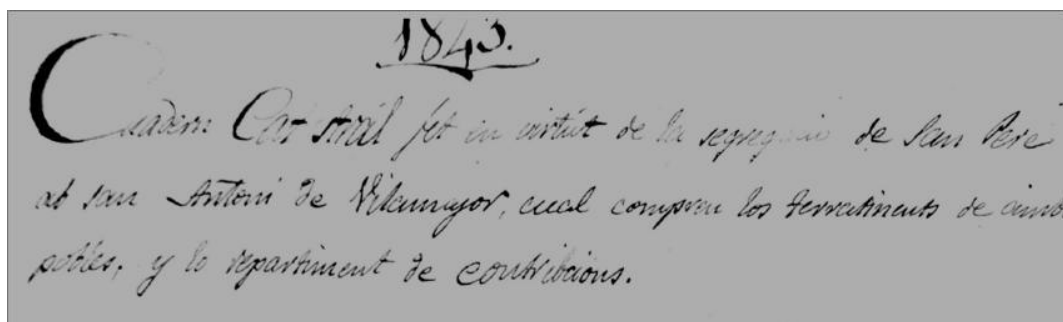 1843.
Cuadern Catastral fet en virtut de la segregació de San Pere
ab san Antoni de Vilamajor, cual compren los terratinents de
pobles, y lo repartiment de contribcions.